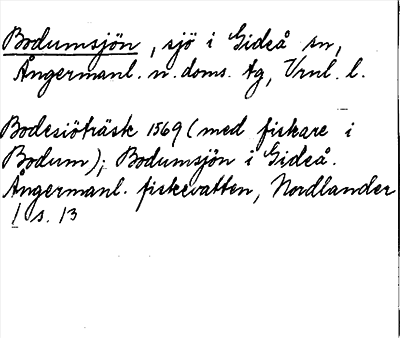 Bodumsjön, sjö i Gideå sn,
Ångermanl. n. doms. tg, Vrnl. l.
Bodesiöträsk 1569 (med fiskare i
Bodum); Bodumsjön i Gideå.
Ångermanl. fiskevatten, Nordlander
I s. 13